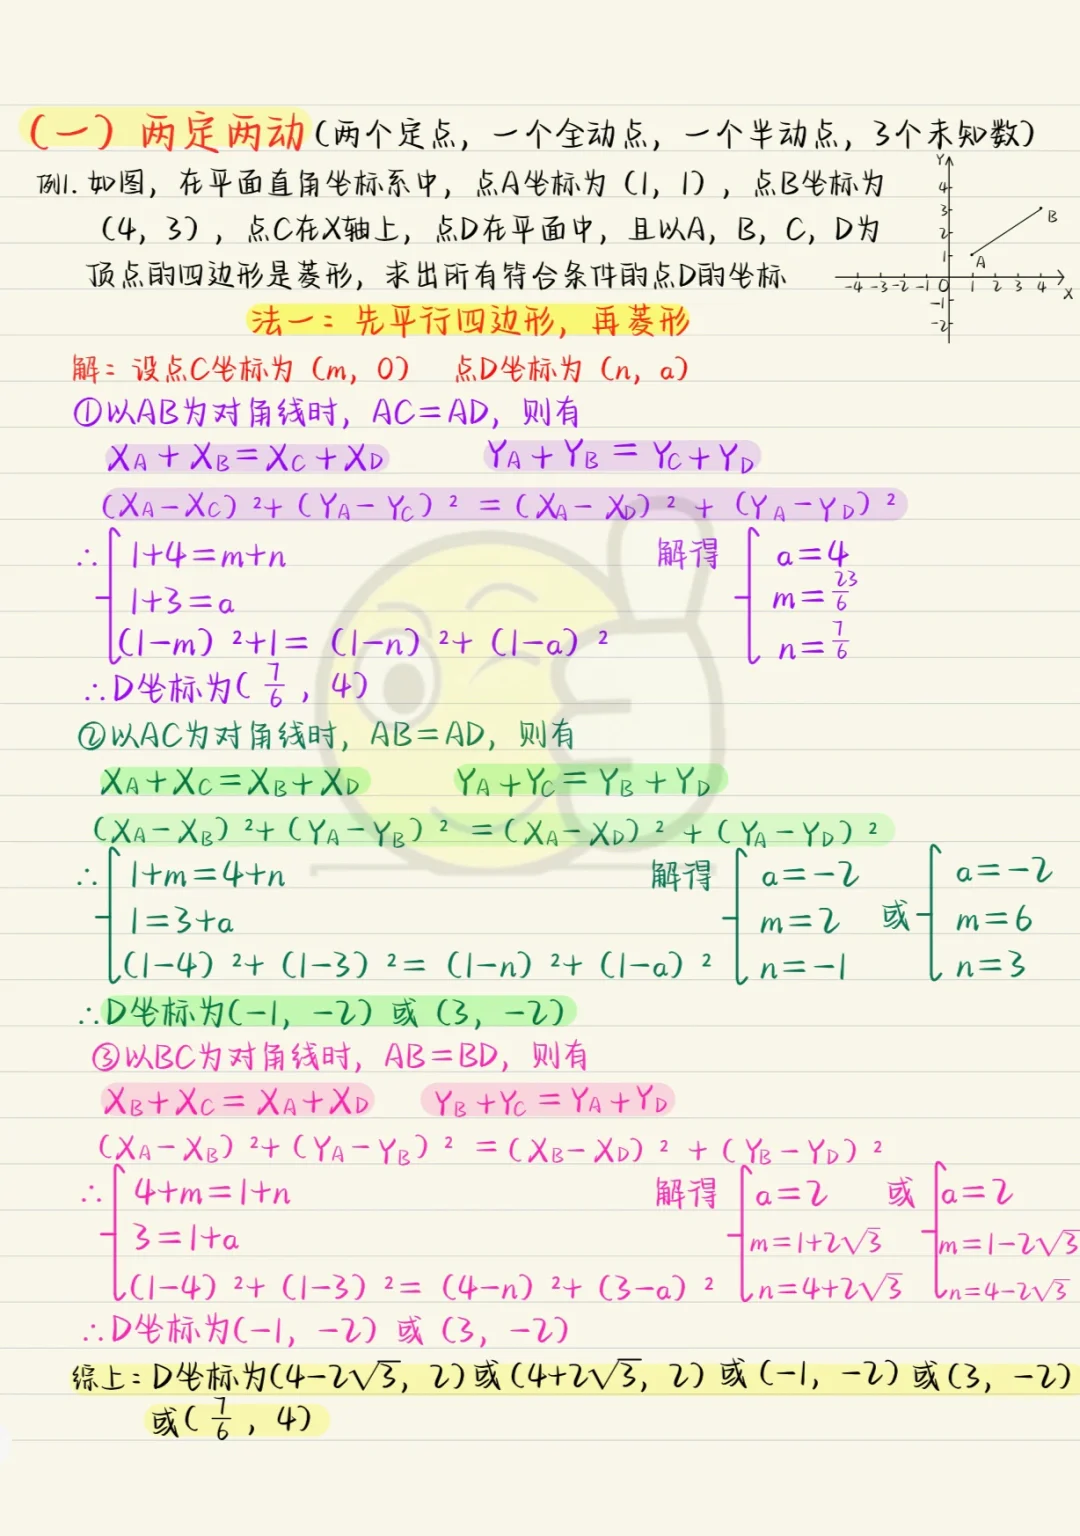 (一) 两定两动(两个定点，一个全动点，一个半动点，3个未知数)
例1. 如图，在平面直角坐标系中，点A坐标为 (1, 1)，点B坐标为
(4, 3)，点C在X轴上，点D在平面中，且以A，B，C，D为
顶点的四边形是菱形，求出所有符合条件的点D的坐标
Y
4
3
2
1
B
A
-4 -3 -2 -1 0 1 2 3 4 X
-1
-2
法一：先平行四边形，再菱形
解：设点C坐标为 (m, 0) 点D坐标为 (n, a)
①以AB为对角线时，AC=AD，则有
XA+XB=XC+XD YA+YB=YC+YD
(XA-XC)²+(YA-YC)²=(XA-XD)²+(YA-YD)²
∴ 1+4=m+n 解得 a=4
1+3=a m=23/6
(1-m)²+1=(1-n)²+(1-a)² n=7/6
∴D坐标为(7/6, 4)
②以AC为对角线时，AB=AD，则有
XA+XC=XB+XD YA+YC=YB+YD
(XA-XB)²+(YA-YB)²=(XA-XD)²+(YA-YD)²
∴ 1+m=4+n 解得 a=-2 a=-2
1=3+a m=2 或 m=6
(1-4)²+(1-3)²=(1-n)²+(1-a)² n=-1 n=3
∴D坐标为(-1, -2) 或 (3, -2)
③以BC为对角线时，AB=BD，则有
XB+XC=XA+XD YB+YC=YA+YD
(XA-XB)²+(YA-YB)²=(XB-XD)²+(YB-YD)²
∴ 4+m=1+n 解得 a=2 或 a=2
3=1+a m=1+2√3 m=1-2√3
(1-4)²+(1-3)²=(4-n)²+(3-a)² n=4+2√3 n=4-2√3
∴D坐标为(-1, -2) 或 (3, -2)
综上：D坐标为(4-2√3, 2)或(4+2√3, 2)或(-1, -2)或(3, -2)
或(7/6, 4)